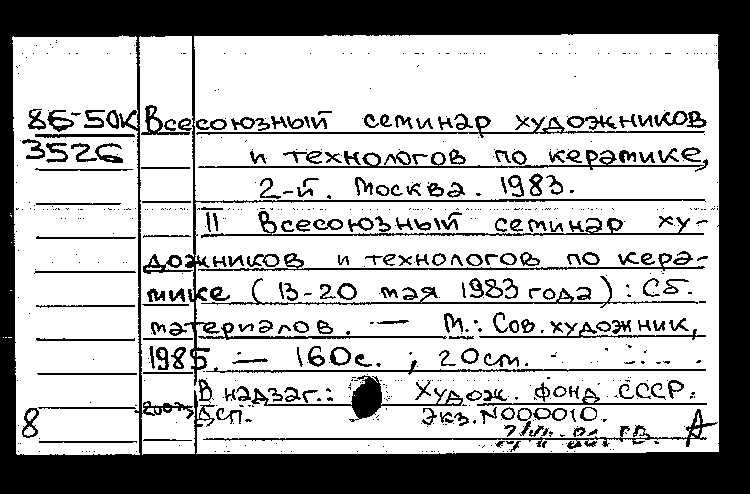 86-50К Всесоюзный семинар художников
3526 и технологов по керамике,
2-й. Москва. 1983.
II Всесоюзный семинар ху-
дожников и технологов по кера-
мике (13-20 мая 1983 года) : Сб.
материалов. — М.: Сов. художник,
1985. — 160с. ; 20см.
В надзаг.: Худож. фонд СССР.
ДСП. Экз. N000010.
8 ГВ. А